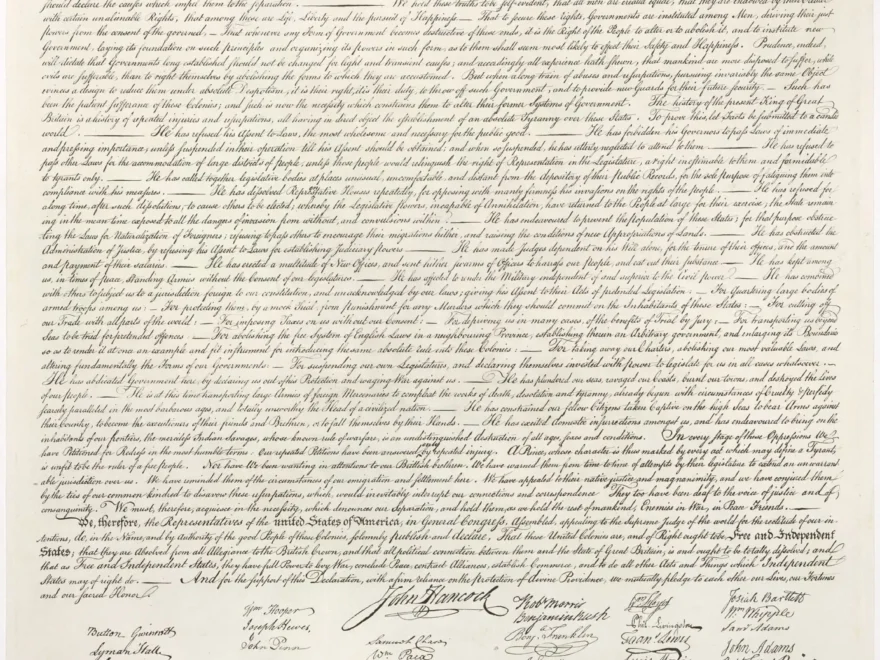 should declare the causes which impel them to the separation. — We hold these truths to be self-evident, that all men are created equal, that they are endowed by their Creator
with certain unalienable Rights, that among these are Life, Liberty and the pursuit of Happiness — That to secure these rights, Governments are instituted among Men, deriving their just
powers from the consent of the governed — That whenever any Form of Government becomes destructive of these ends, it is the Right of the People to alter or to abolish it, and to institute new
Government, laying its foundation on such principles and organizing its powers in such form, as to them shall seem most likely to effect their Safety and Happiness. Prudence, indeed,
will dictate that Governments long established should not be changed for light and transient causes; and accordingly all experience hath shewn, that mankind are more disposed to suffer, while
evils are sufferable, than to right themselves by abolishing the forms to which they are accustomed. But when a long train of abuses and usurpations, pursuing invariably the same Object
evinces a design to reduce them under absolute Despotism, it is their right, it is their duty, to throw off such Government, and to provide new Guards for their future security — Such has
been the patient sufferance of these Colonies; and such is now the necessity which constrains them to alter their former Systems of Government. The history of the present King of Great
Britain is a history of repeated injuries and usurpations, all having in direct object the establishment of an absolute Tyranny over these States. To prove this, let Facts be submitted to a candid
world. — He has refused his Assent to Laws, the most wholesome and necessary for the public good. — He has forbidden his Governors to pass Laws of immediate
and pressing importance, unless suspended in their operation till his Assent should be obtained; and when so suspended, he has utterly neglected to attend to them. — He has refused to
pass other Laws for the accommodation of large districts of people, unless those people would relinquish the right of Representation in the Legislature, a right inestimable to them and formidable
to tyrants only. — He has called together legislative bodies at places unusual, uncomfortable, and distant from the depository of their public Records, for the sole purpose of fatiguing them into
compliance with his measures. — He has dissolved Representative Houses repeatedly, for opposing with manly firmness his invasions on the rights of the people. — He has refused for
a long time, after such dissolutions, to cause others to be elected; whereby the Legislative powers, incapable of Annihilation, have returned to the People at large for their exercise; the State remain-
ing in the mean time exposed to all the dangers of invasion from without, and convulsions within. — He has endeavoured to prevent the population of these States; for that purpose obstruc-
ting the Laws for Naturalization of Foreigners; refusing to pass others to encourage their migrations hither, and raising the conditions of new Appropriations of Lands. — He has obstructed the
Administration of Justice, by refusing his Assent to Laws for establishing Judiciary powers — He has made Judges dependent on his Will alone, for the tenure of their offices, and the amount
and payment of their salaries. — He has erected a multitude of New Offices, and sent hither swarms of Officers to harrass our people, and eat out their substance. — He has kept among
us, in times of peace, Standing Armies without the Consent of our legislatures. — He has affected to render the Military independent of and superior to the Civil power. — He has combined
with others to subject us to a jurisdiction foreign to our constitution, and unacknowledged by our laws; giving his Assent to their Acts of pretended Legislation: — For Quartering large bodies of
armed troops among us: — For protecting them, by a mock Trial, from punishment for any Murders which they should commit on the Inhabitants of these States: — For cutting off
our Trade with all parts of the world: — For imposing Taxes on us without our Consent: — For depriving us in many cases, of the benefits of Trial by Jury: — For transporting us beyond
Seas to be tried for pretended offences — For abolishing the free System of English Laws in a neighbouring Province, establishing therein an Arbitrary government, and enlarging its Boundaries
so as to render it at once an example and fit instrument for introducing the same absolute rule into these Colonies: — For taking away our Charters, abolishing our most valuable Laws, and
altering fundamentally the Forms of our Governments: — For suspending our own Legislatures, and declaring themselves invested with power to legislate for us in all cases whatsoever. —
He has abdicated Government here, by declaring us out of his Protection and waging War against us. — He has plundered our seas, ravaged our Coasts, burnt our towns, and destroyed the lives
of our people. — He is at this time transporting large Armies of foreign Mercenaries to compleat the works of death, desolation and tyranny, already begun with circumstances of Cruelty & perfidy
scarcely paralleled in the most barbarous ages, and totally unworthy the Head of a civilized nation. — He has constrained our fellow Citizens taken Captive on the high Seas to bear Arms against
their Country, to become the executioners of their friends and Brethren, or to fall themselves by their Hands. — He has excited domestic insurrections amongst us, and has endeavoured to bring on the
inhabitants of our frontiers, the merciless Indian Savages, whose known rule of warfare, is an undistinguished destruction of all ages, sexes and conditions. In every stage of these Oppressions We
have Petitioned for Redress in the most humble terms: Our repeated Petitions have been answered only by repeated injury. A Prince, whose character is thus marked by every act which may define a Tyrant,
is unfit to be the ruler of a free people. Nor have We been wanting in attentions to our Brittish brethren. We have warned them from time to time of attempts by their legislature to extend an unwarrant-
able jurisdiction over us. We have reminded them of the circumstances of our emigration and settlement here. We have appealed to their native justice and magnanimity, and we have conjured them
by the ties of our common kindred to disavow these usurpations, which, would inevitably interrupt our connections and correspondence. They too have been deaf to the voice of justice and of
consanguinity. We must, therefore, acquiesce in the necessity, which denounces our Separation, and hold them, as we hold the rest of mankind, Enemies in War, in Peace Friends. —
We, therefore, the Representatives of the united States of America, in General Congress, Assembled, appealing to the Supreme Judge of the world for the rectitude of our in-
tentions, do, in the Name, and by Authority of the good People of these Colonies, solemnly publish and declare, That these United Colonies are, and of Right ought to be Free and Independent
States; that they are Absolved from all Allegiance to the British Crown, and that all political connection between them and the State of Great Britain, is and ought to be totally dissolved; and
that as Free and Independent States, they have full Power to levy War, conclude Peace, contract Alliances, establish Commerce, and to do all other Acts and Things which Independent
States may of right do. — And for the support of this Declaration, with a firm reliance on the protection of divine Providence, we mutually pledge to each other our Lives, our Fortunes
and our sacred Honor.
John Hancock
Button Gwinnett
Lyman Hall
Wm Hooper
Joseph Hewes,
John Penn
Samuel Chase
Wm Paca
Robt Morris
Benjamin Rush
Benja. Franklin
Wm Floyd
Phil. Livingston
Frans. Lewis
Josiah Bartlett
Wm Whipple
Saml Adams
John Adams